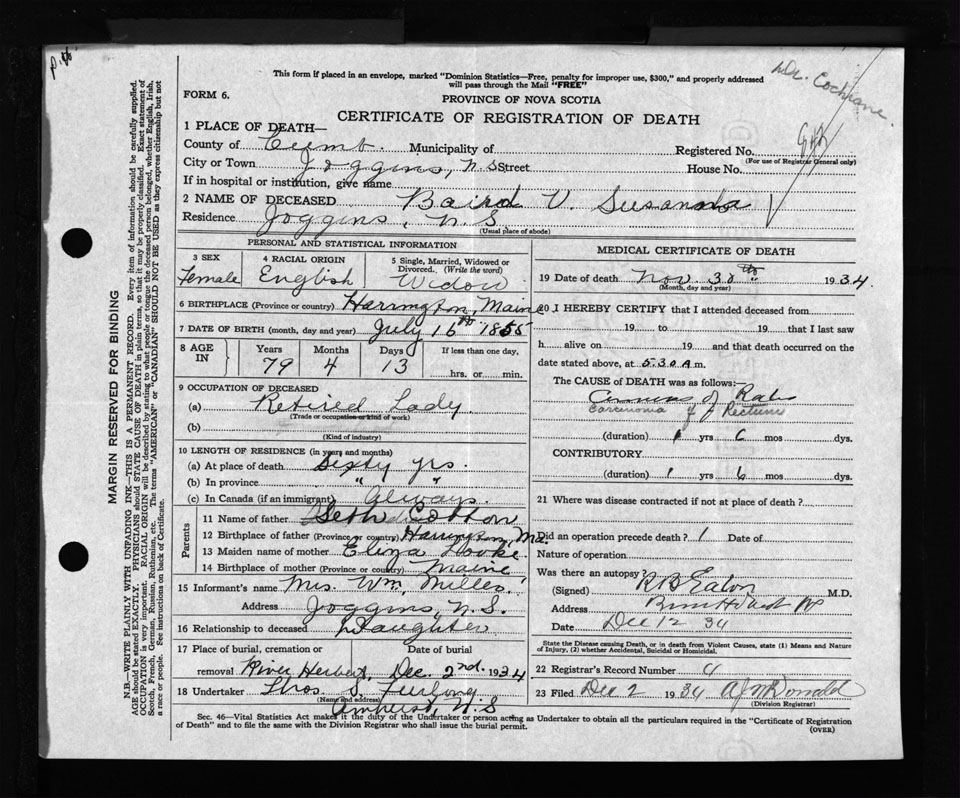 p.
This form if placed in an envelope, marked "Dominion Statistics—Free, penalty for improper use, $300," and properly addressed
will pass through the Mail "FREE"
Dr. Cochrane.
FORM 6.
PROVINCE OF NOVA SCOTIA
CERTIFICATE OF REGISTRATION OF DEATH
1 PLACE OF DEATH—
County of Cumb. Municipality of Registered No.
(For use of Registrar General only)
City or Town Joggins, N.S. Street House No.
If in hospital or institution, give name
2 NAME OF DECEASED Baird V. Susanna
Residence Joggins, N.S.
(Usual place of abode)
PERSONAL AND STATISTICAL INFORMATION
3 SEX Female
4 RACIAL ORIGIN English
5 Single, Married, Widowed or Divorced. (Write the word) Widow
6 BIRTHPLACE (Province or country) Harrington, Maine
7 DATE OF BIRTH (month, day and year) July 16th 1855
8 AGE IN Years 79 Months 4 Days 13 If less than one day, hrs. or min.
9 OCCUPATION OF DECEASED
(a) Retired Lady.
(Trade or occupation or kind of work)
(b)
(Kind of industry)
10 LENGTH OF RESIDENCE (in years and months)
(a) At place of death Sixty yrs.
(b) In province " "
(c) In Canada (if an immigrant) Always.
Parents
11 Name of father Seth Cotton
12 Birthplace of father (Province or country) Harrington, Me.
13 Maiden name of mother Eliza
14 Birthplace of mother (Province or country) Maine
15 Informant's name Mrs. Wm. Milles
Address Joggins, N.S.
16 Relationship to deceased Daughter
17 Place of burial, cremation or Date of burial
removal River Herbert, Dec. 2nd. 1934
18 Undertaker Thos. S. Furlong
(Name and address)
Amherst, N.S
MEDICAL CERTIFICATE OF DEATH
19 Date of death Nov. 30th 1934.
(Month, day and year)
20 I HEREBY CERTIFY that I attended deceased from
19 to 19 that I last saw
h alive on 19 and that death occurred on the
date stated above, at 5.30 A m.
The CAUSE OF DEATH was as follows:—
of
Carcinoma of Rectum
(duration) 1 yrs 6 mos dys.
CONTRIBUTORY
(duration) 1 yrs 6 mos dys.
21 Where was disease contracted if not at place of death?
Did an operation precede death? Date of
Nature of operation
Was there an autopsy?
(Signed) R B Eaton M.D.
Address
Date Dec 12 34
State the Disease causing Death, or in death from Violent Causes, state (1) Means and Nature
of Injury, (2) whether Accidental, Suicidal or Homicidal.
22 Registrar's Record Number
23 Filed Dec 2 1934 A J McDonald
(Division Registrar)
Sec. 46—Vital Statistics Act makes it the duty of the Undertaker or person acting as Undertaker to obtain all the particulars required in the "Certificate of Registration
of Death" and to file the same with the Division Registrar who shall issue the burial permit.
(OVER)
MARGIN RESERVED FOR BINDING
N.B.—WRITE PLAINLY WITH UNFADING INK—THIS IS A PERMANENT RECORD. Every item of information should be carefully supplied.
AGE should be stated EXACTLY. PHYSICIANS should STATE CAUSE OF DEATH in plain terms, so that it may be properly classified. Exact statement of
OCCUPATION is very important. RACIAL ORIGIN will be described by stating to what people or tongue the deceased person belonged, whether English, Irish,
Scotch, French, German, Russian, Ruthenian, etc. The terms "AMERICAN" or "CANADIAN" SHOULD NOT BE USED as they express citizenship but not
a race or people. See instructions on back of Certificate.